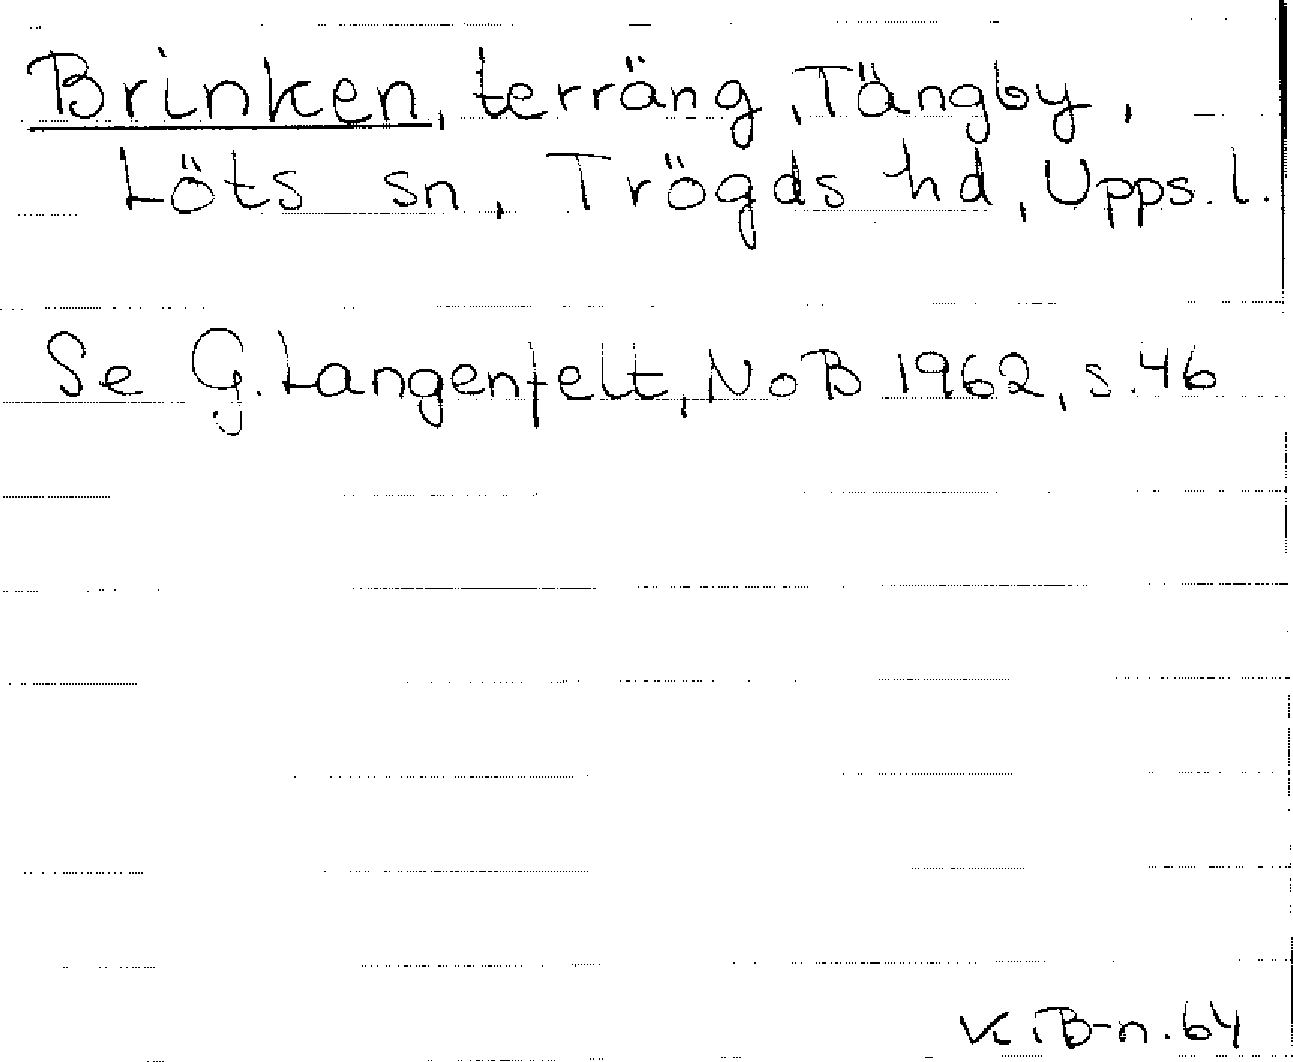 Brinken, terräng, Tängby,
Löts sn, Trögds hd, Upps. l.
Se G. Langenfelt, NoB 1962, s. 46
K. B-n. 64